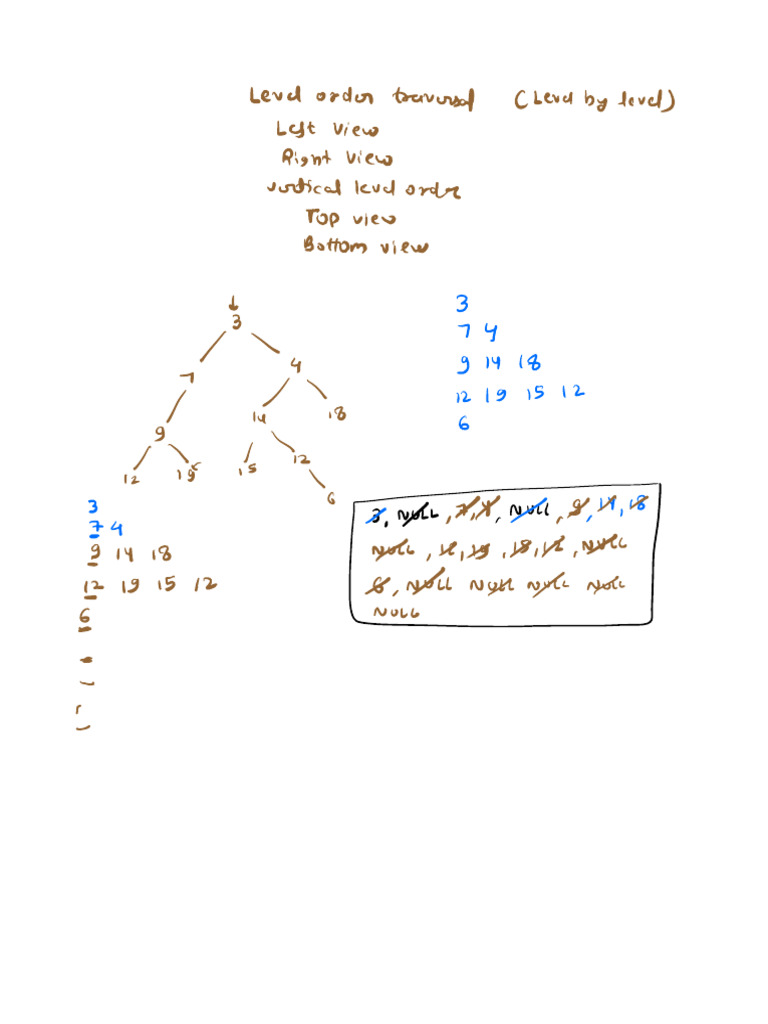 Level order traversal (Level by level)
Left View
Right View
vertical level order
Top view
Bottom view
3
7 4
9 14 18
12 19 15 12
6
3
7 4
9 14 18
12 19 15 12
6
3
7 4
9 14 18
12 19 15 12
6
3, NULL, 7, 4, NULL, 9, 14, 18
NULL, 12, 19, 15, 12, NULL
6, NULL NULL NULL NULL
NULL